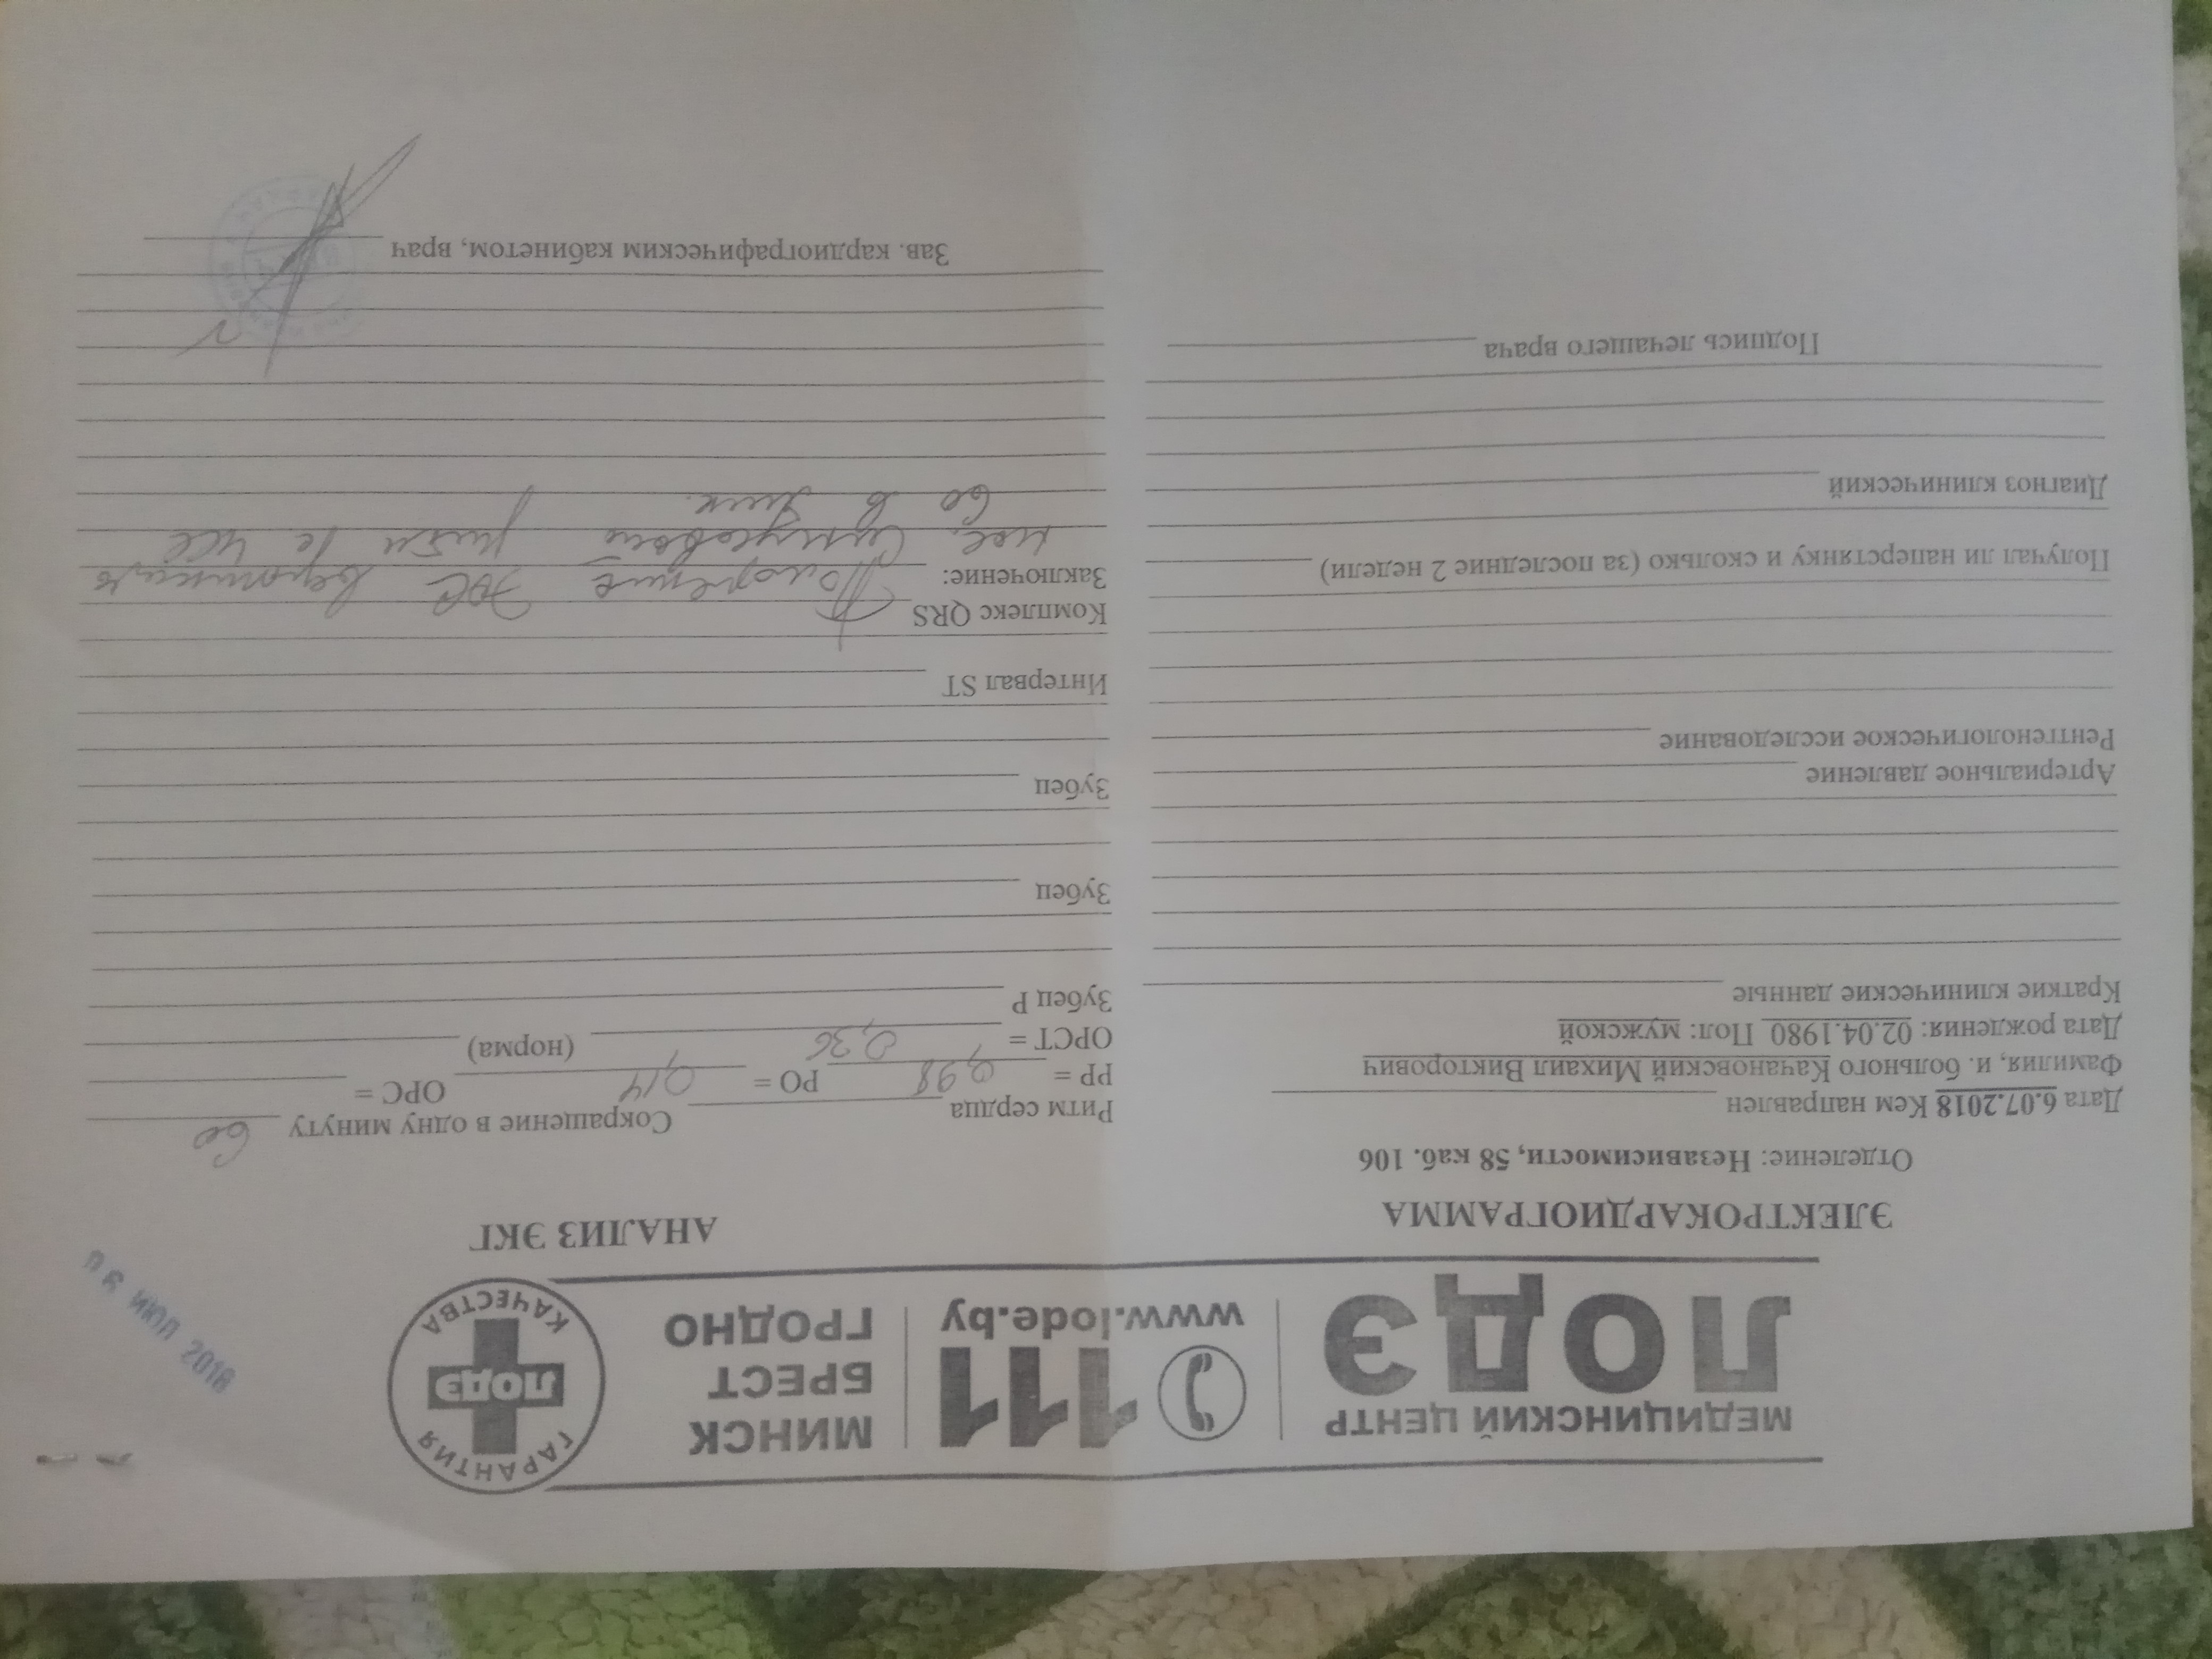 МЕДИЦИНСКИЙ ЦЕНТР
ЛОДЭ
111
www.lode.by
МИНСК
БРЕСТ
ГРОДНО
ГАРАНТИЯ
ЛОДЭ
КАЧЕСТВА
ИЮЛ 2018
ЭЛЕКТРОКАРДИОГРАММА
Отделение: Независимости, 58 каб. 106
Дата 6.07.2018 Кем направлен
Фамилия, и. больного Качановский Михаил Викторович
Дата рождения: 02.04.1980 Пол: мужской
Краткие клинические данные
Артериальное давление
Рентгенологическое исследование
Получал ли наперстянку и сколько (за последние 2 недели)
Диагноз клинический
Подпись лечащего врача
АНАЛИЗ ЭКГ
Ритм сердца Сокращение в одну минуту 60
РР = 0,98 РО = 0,14 ОРС =
ОРСТ = 0,36 (норма)
Зубец Р
Зубец
Зубец
Интервал ST
Комплекс QRS
Заключение: Положение ЭОС вертикаль
ное. Синусовый ритм с ЧСС
60 в мин.
Зав. кардиографическим кабинетом, врач